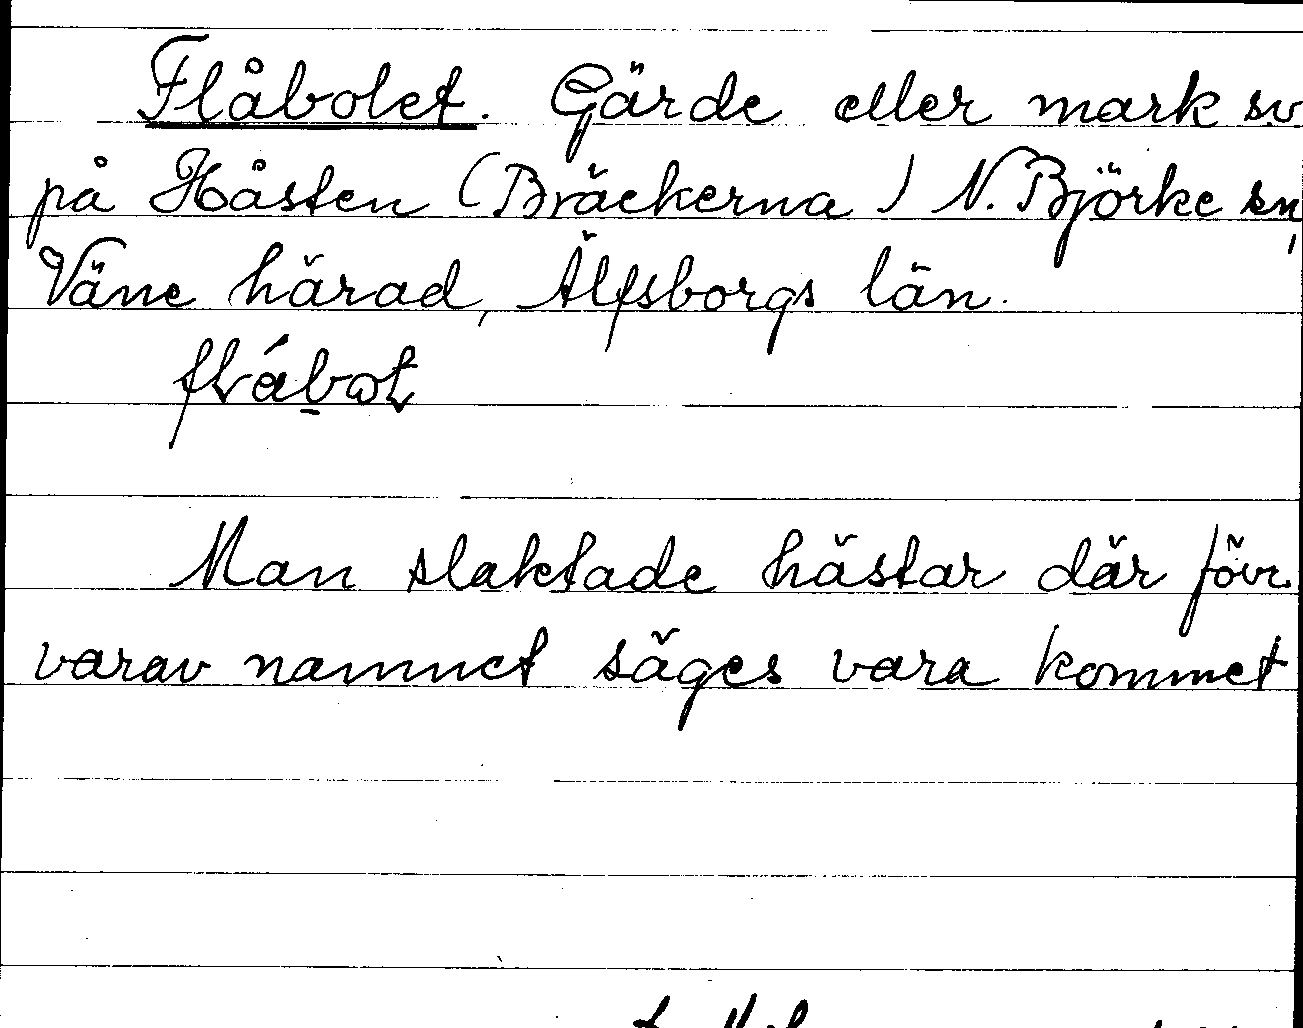 Flåbolet. Gärde eller mark sv
på Håsten (Bräckerna) N. Björke sn,
Väne härad, Älfsborgs län.
Man slaktade hästar där förr
varav namnet säges vara kommet